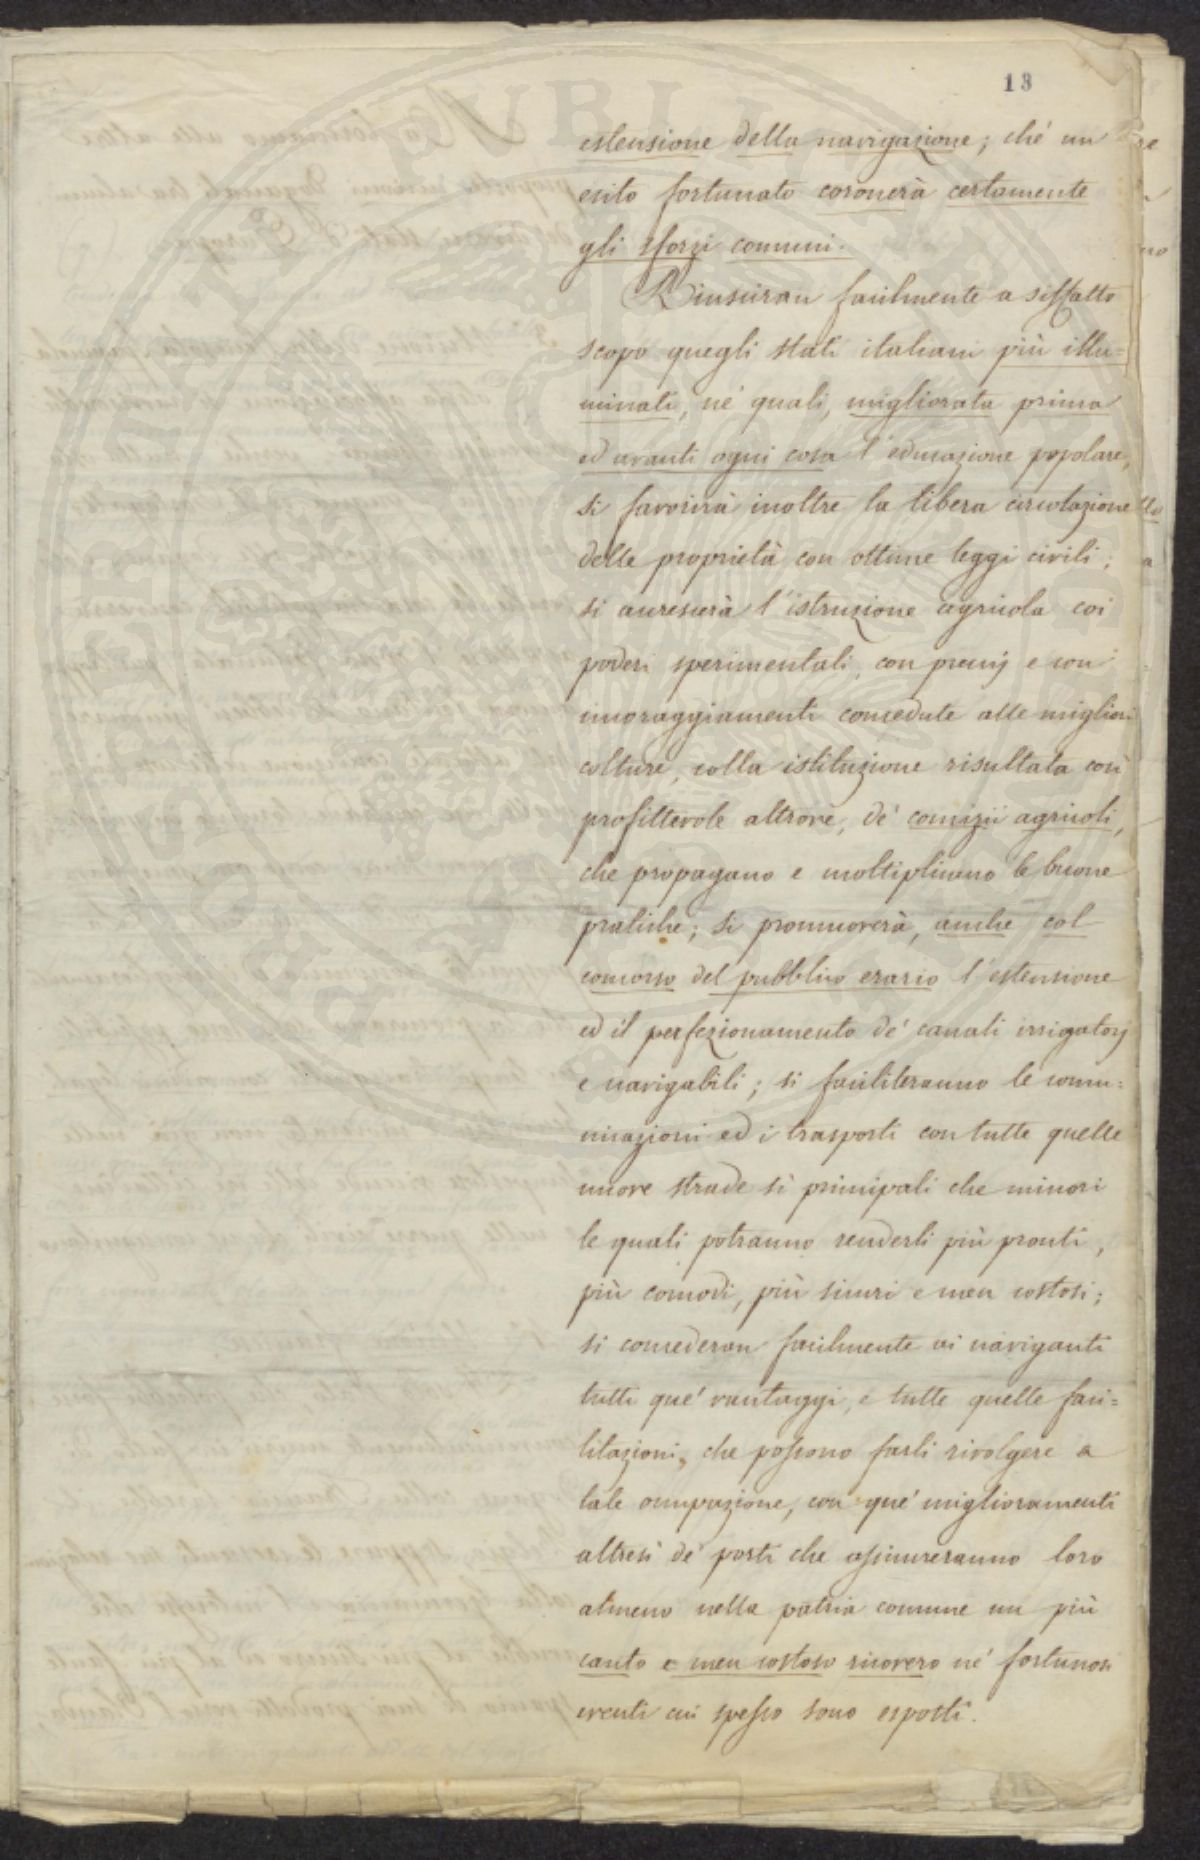 13
estensione della navigazione; ché un
esito fortunato coronerà certamente
gli sforzi comuni.
Riusciran facilmente a siffatto
scopo quegli stati italiani più illu=
minati, né quali, migliorata prima
ed avanti ogni cosa l'educazione popolare,
si favorirà inoltre la libera circolazione
delle proprietà con ottime leggi civili;
si accrescerà l'istruzione agricola coi
poderi sperimentali, con premij e con
incoraggiamenti concedute alle migliori
colture, colla istituzione risultata così
profittevole altrove, de' comizii agricoli,
che propagano e moltiplicano le buone
pratiche; si promuoverà, anche col
concorso del pubblico erario l'estensione
ed il perfezionamento de' canali irrigatorj
e navigabili; si faciliteranno le comu=
nicazioni ed i trasporti con tutte quelle
nuove strade sì principali che minori
le quali potranno renderli più pronti,
più comodi, più sicuri e men costosi;
si concederan facilmente ai naviganti
tutti que' vantaggi, e tutte quelle faci=
litazioni, che possono farli rivolgere a
tale occupazione, con que' miglioramenti
altresì de' porti che assicureranno loro
almeno nella patria comune un più
cauto e men costoso ricovero ne' fortunosi
eventi cui spesso sono esposti.